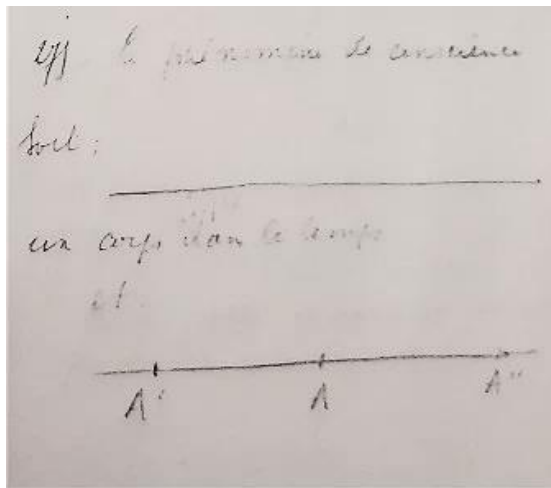 le phénomène de conscience
Soit :
un corps dans le temps
et
A' A A"